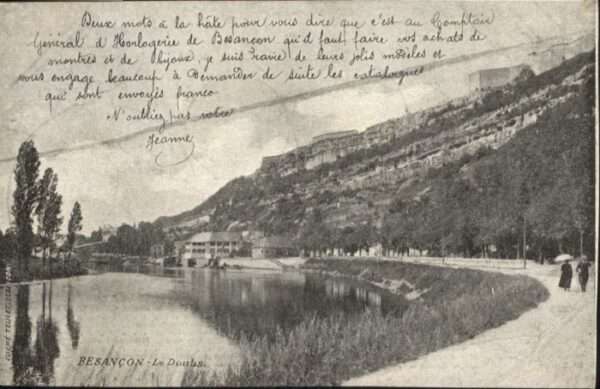 Deux mots à la hâte pour vous dire que c'est au Comptoir
Général d'Horlogerie de Besançon qu'il faut faire vos achats de
montres et de bijoux, je suis ravie de leurs jolis modèles et
vous engage beaucoup à Demander de suite les catalogues
qui sont envoyés franco
N'oubliez pas votre
Jeanne
BESANÇON - Le Doubs.
CLICHÉ TEULET